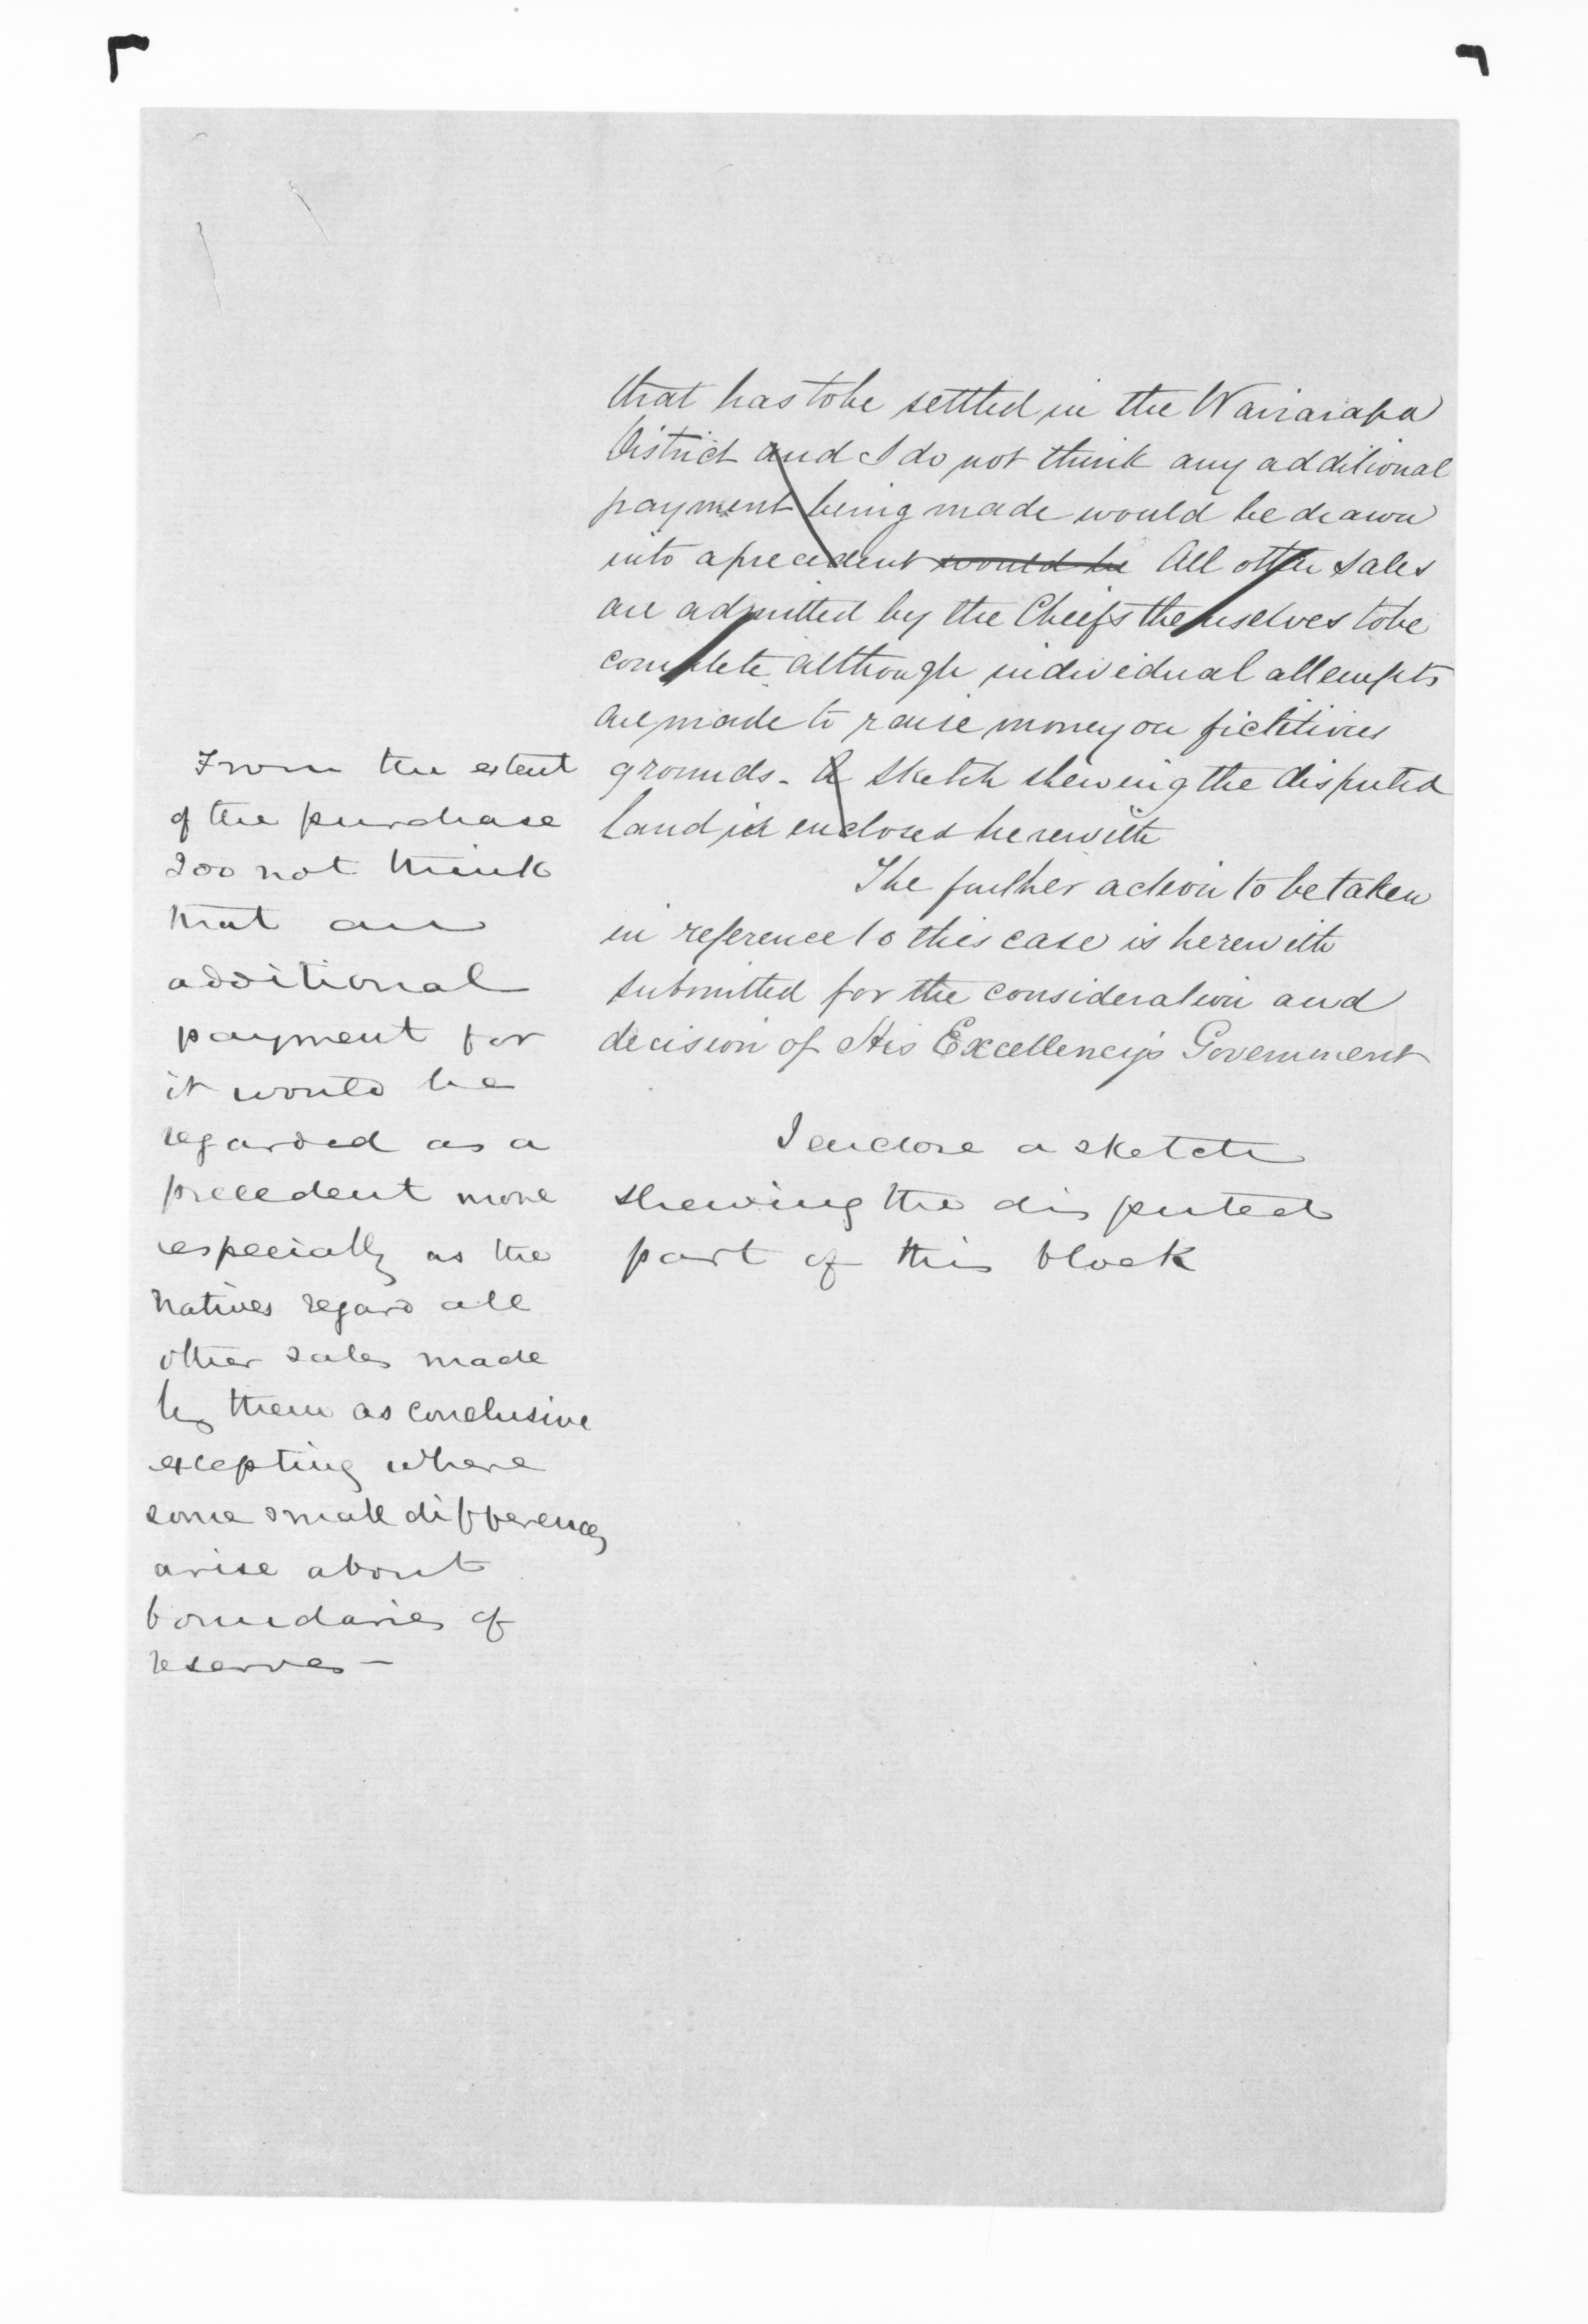 that has to be settled in the Wairarapa
District and I do not think any additional
payment being made would be drawn
into a precedent would be All other sales
are admitted by the Chiefs themselves to be
complete although individual attempts
are made to raise money on fictitious
grounds. A sketch shewing the disputed
land is enclosed herewith
The further action to be taken
in reference to this case is herewith
submitted for the consideration and
decision of His Excellency's Government
I enclose a sketch
shewing the disputed
part of this block
From the extent
of the purchase
I do not think
that an
additional
payment for
it would be
regarded as a
precedent more
especially as the
natives regard all
other sales made
by them as conclusive
excepting where
some small differences
arise about
boundaries of
reserves —